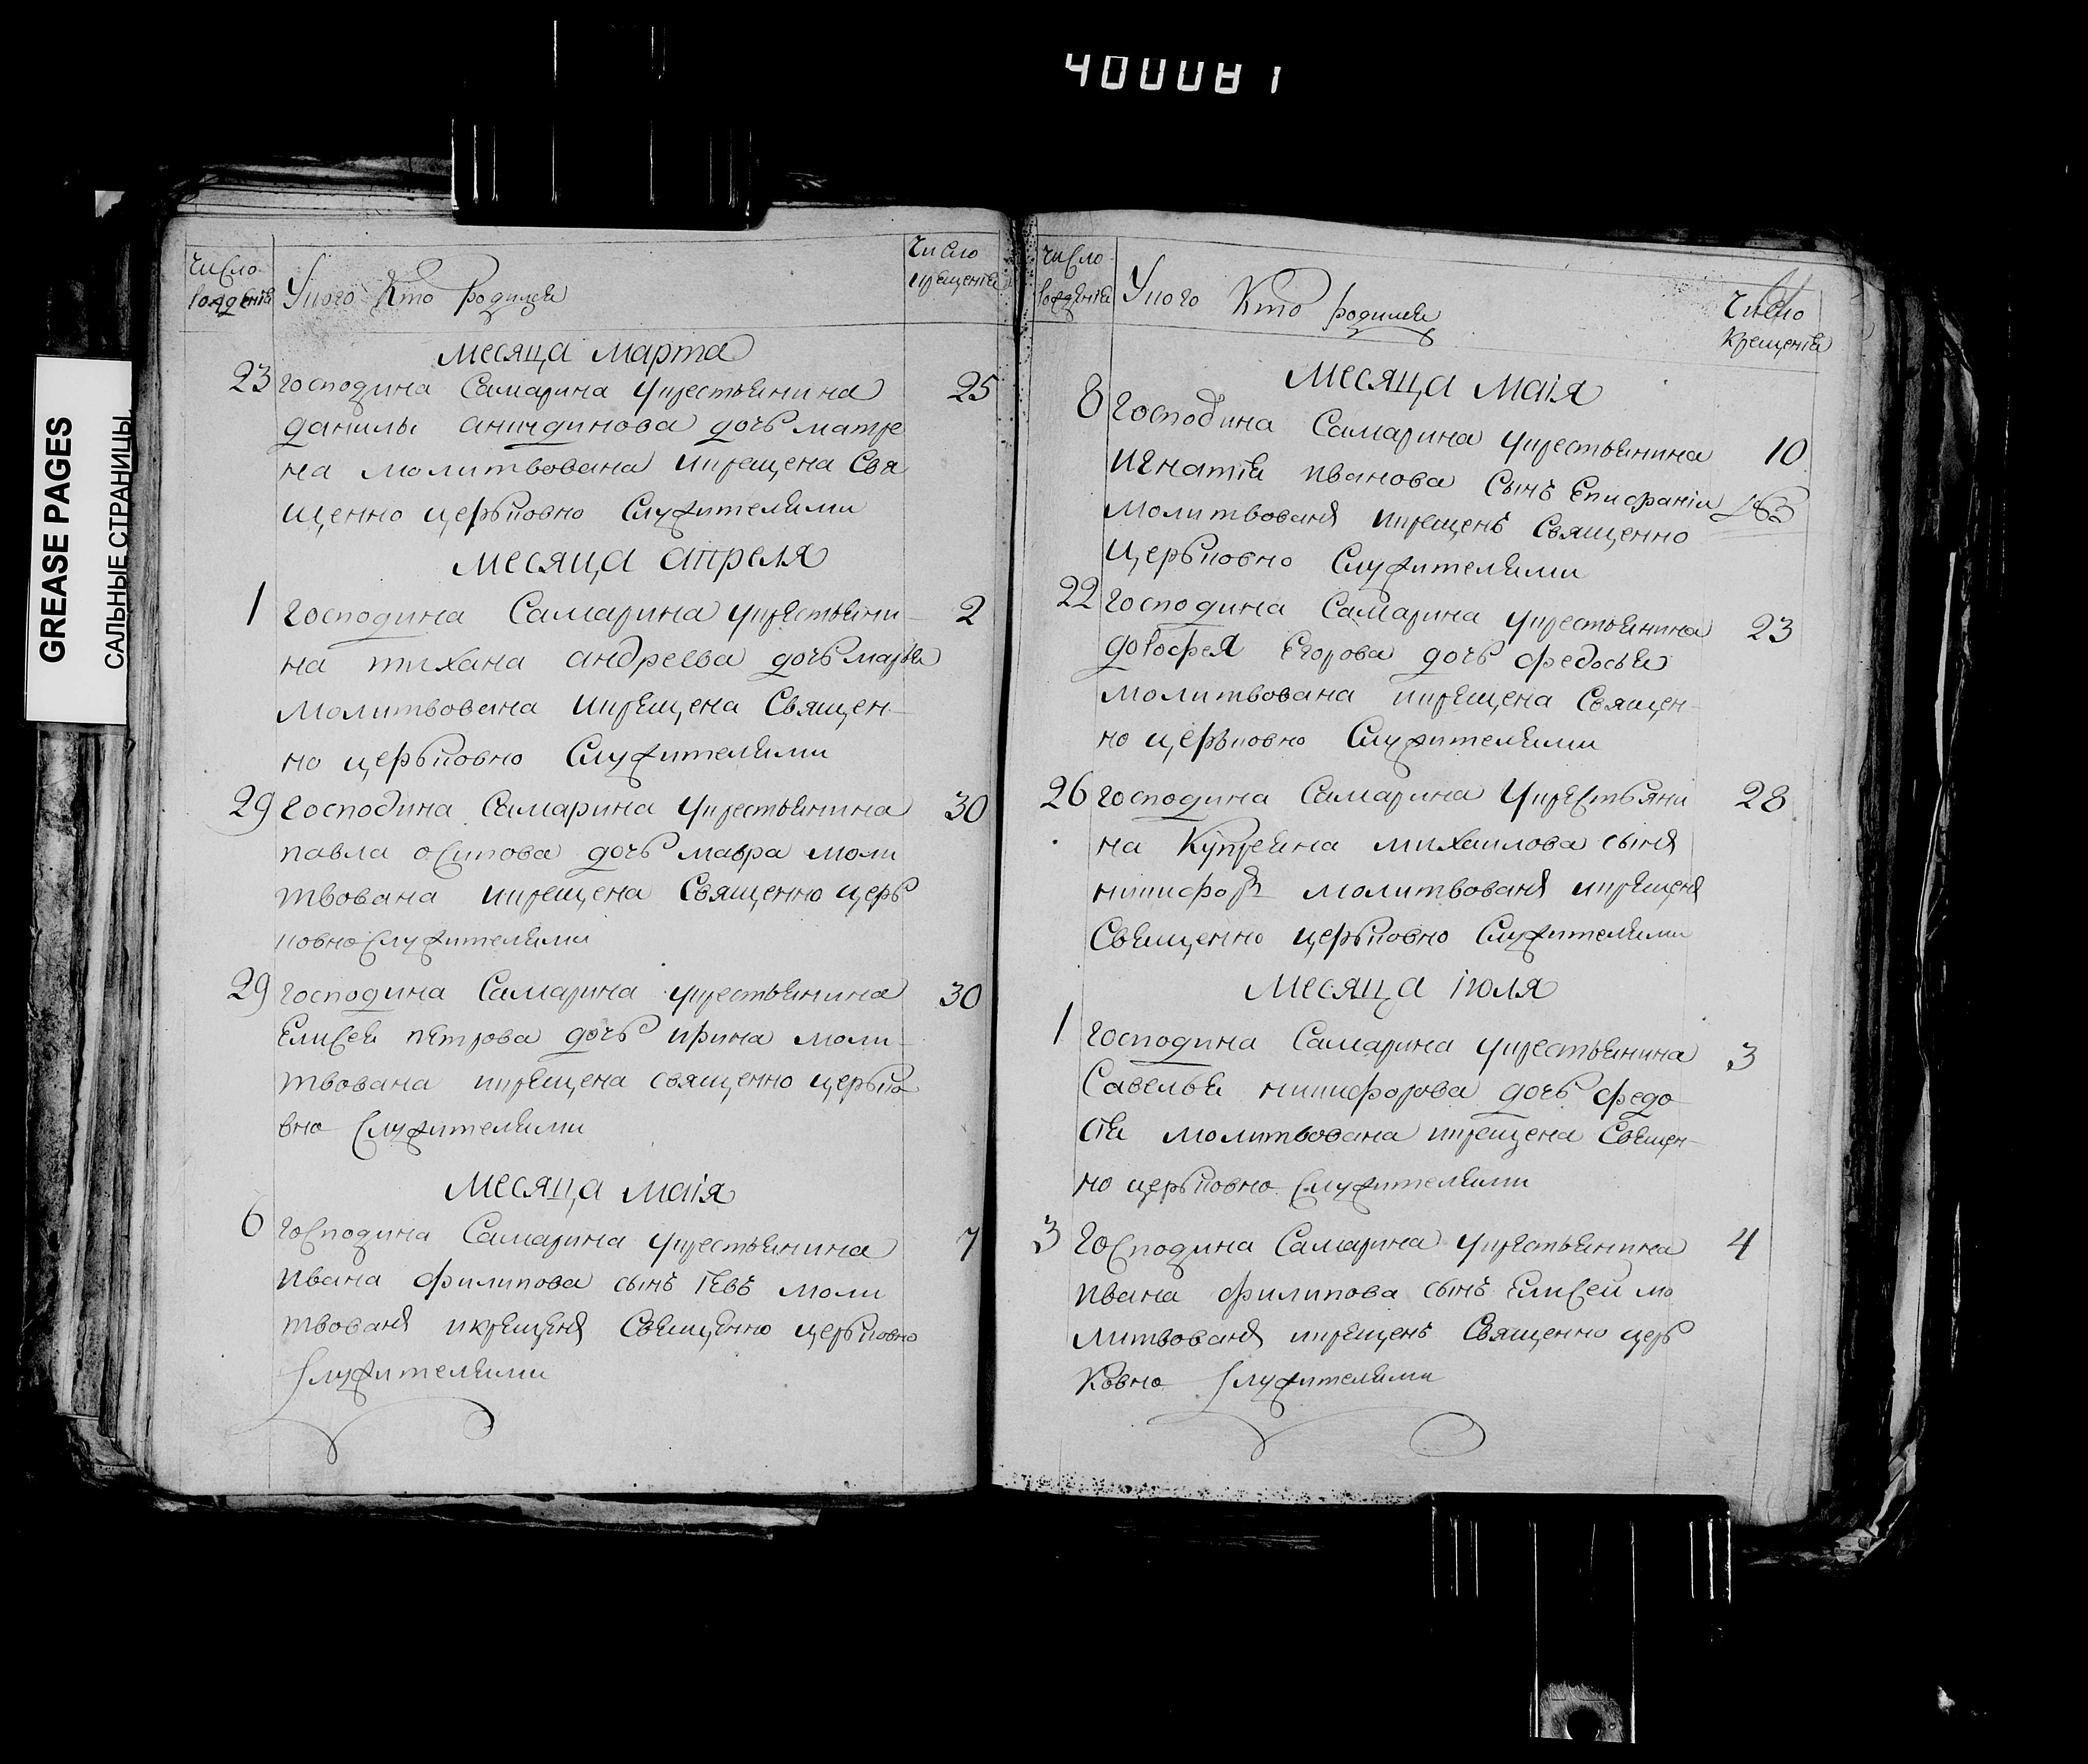 400081
GREASE PAGES
САЛЬНЫЕ СТРАНИЦЫ
Число рождения
Укого Кто родился
Число крещения
месяца марта
23 господина Самарина укрестьянина 25
данилы аникдинова дочь матре
на молитвована икрещена Свя
щенно церьковно Служителями
месяца апреля
1 господина Самарина укрестьяни 2
на тихана андреева дочь марья
молитвована икрещена Священ
но церьковно Служителями
29 господина Самарина укрестьянина 30
павла осипова дочь мавра моли
твована икрещена Священно церь
ковно Служителями
29 господина Самарина укрестьянина 30
Елисея петрова дочь ирина моли
твована икрещена священно церько
вно Служителями
месяца маія
6 господина Самарина укрестьянина 7
ивана филипова сынъ моли
твованъ икрещенъ Священно церьковно
Служителями
Число рождения
Укого Кто родился
Число Крещения
месяца маія
8 господина Самарина укрестьянина 10
игнатія иванова Сынъ Епифаніи
молитвованъ икрещенъ Священно
церьковно Служителями
22 господина Самарина укрестьянина 23
дорофея Егорова дочь федосья
молитвована икрещена Священ
но церьковно Служителями
26 господина Самарина укрестьяни 28
на Купреяна михаилова сынъ
никифоръ молитвованъ икрещенъ
Священно церьковно Служителями
Месяца іюля
1 господина Самарина укрестьянина 3
Савелья никифорова дочь федо
сія молитвована икрещена Священ
но церьковно Служителями
3 господина Самарина укрестьянина 4
ивана филипова сынъ Елисеи мо
литвованъ икрещенъ Священно церь
Ковно Служителями